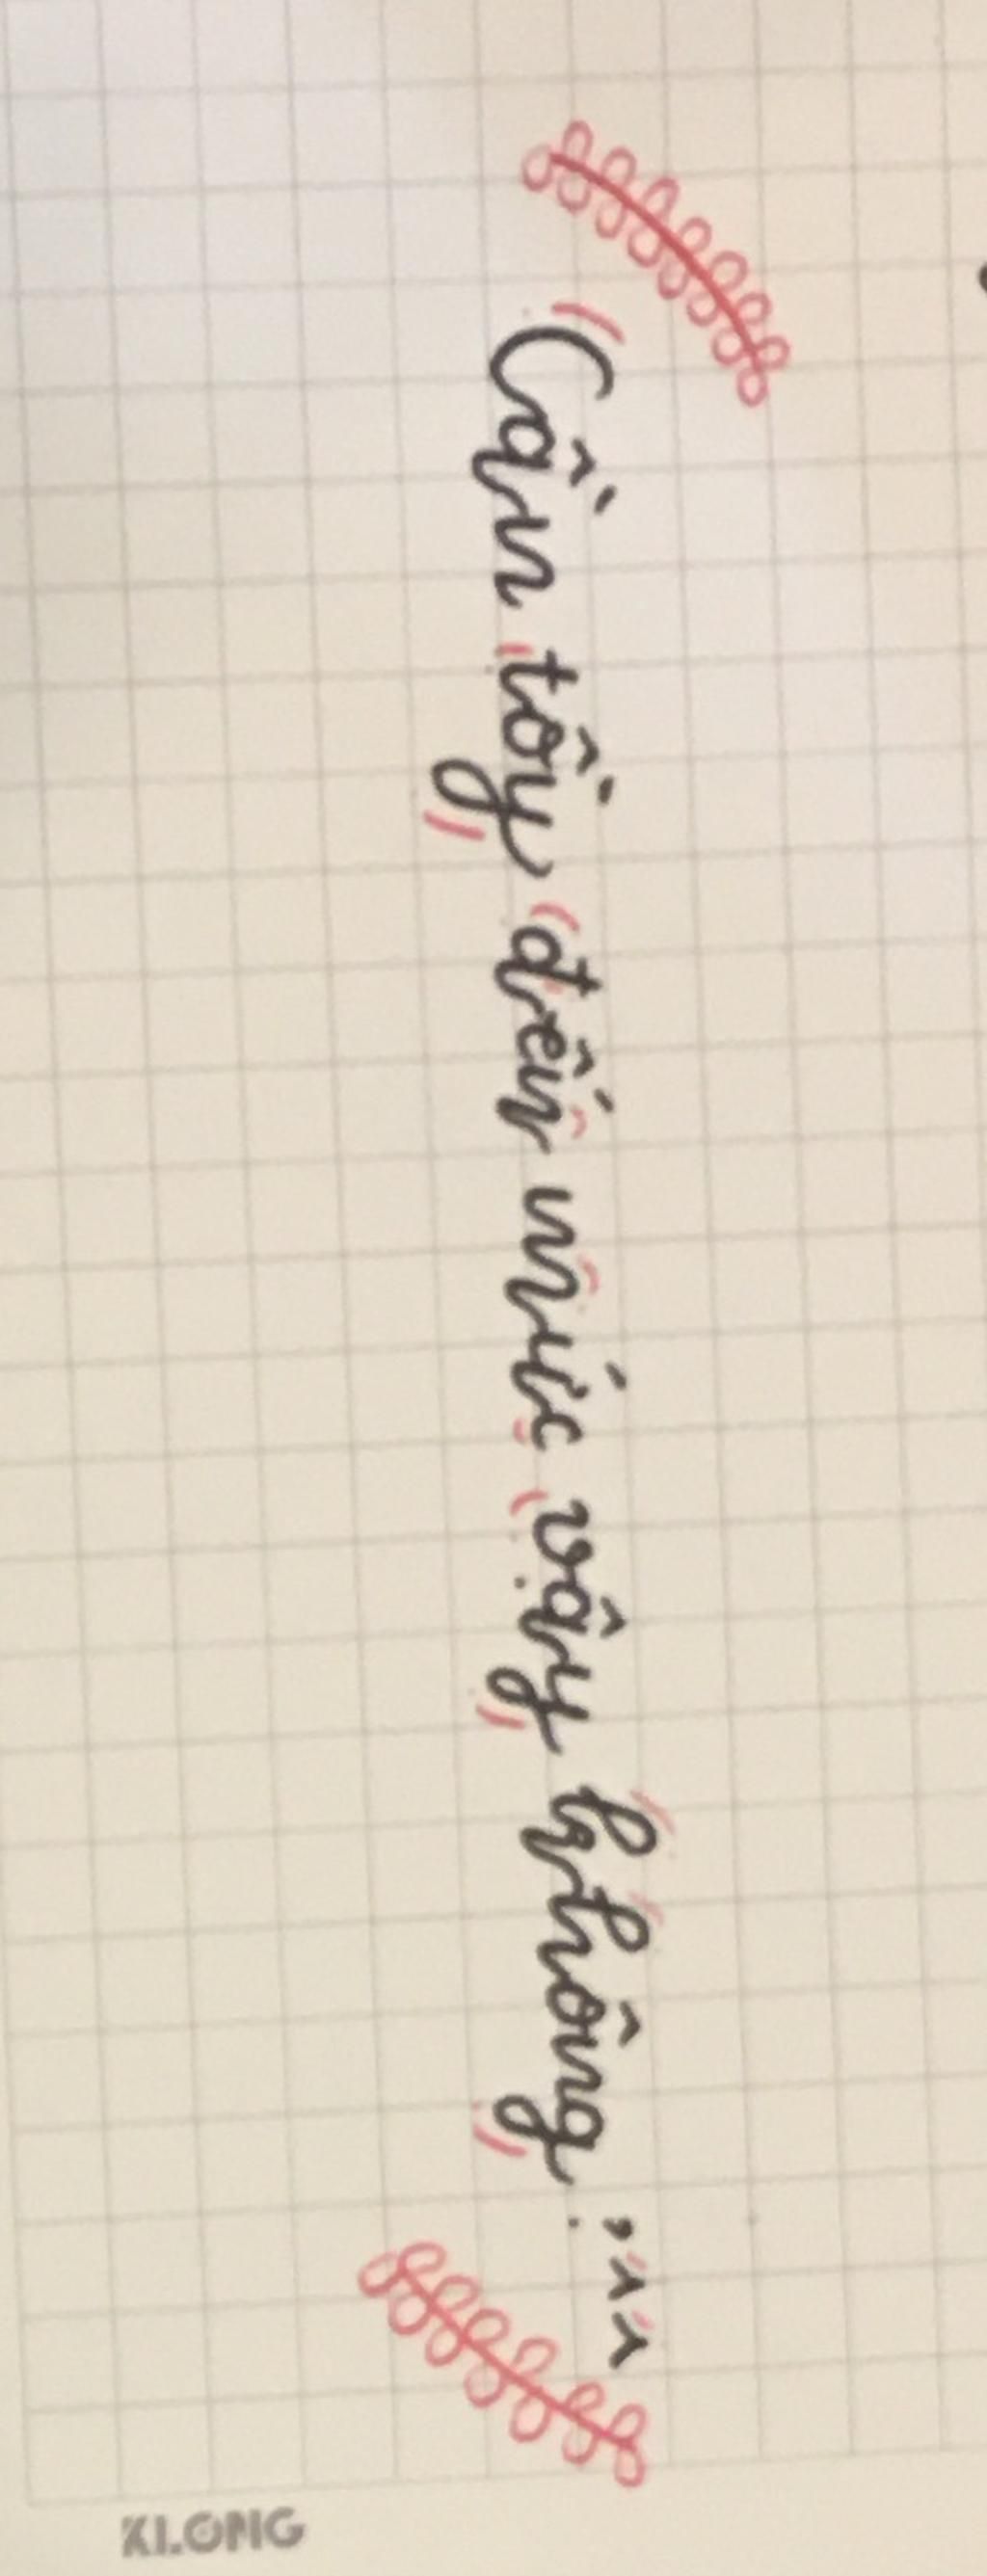 Cần tồy đến mức vậy không. ,^^
KLONG